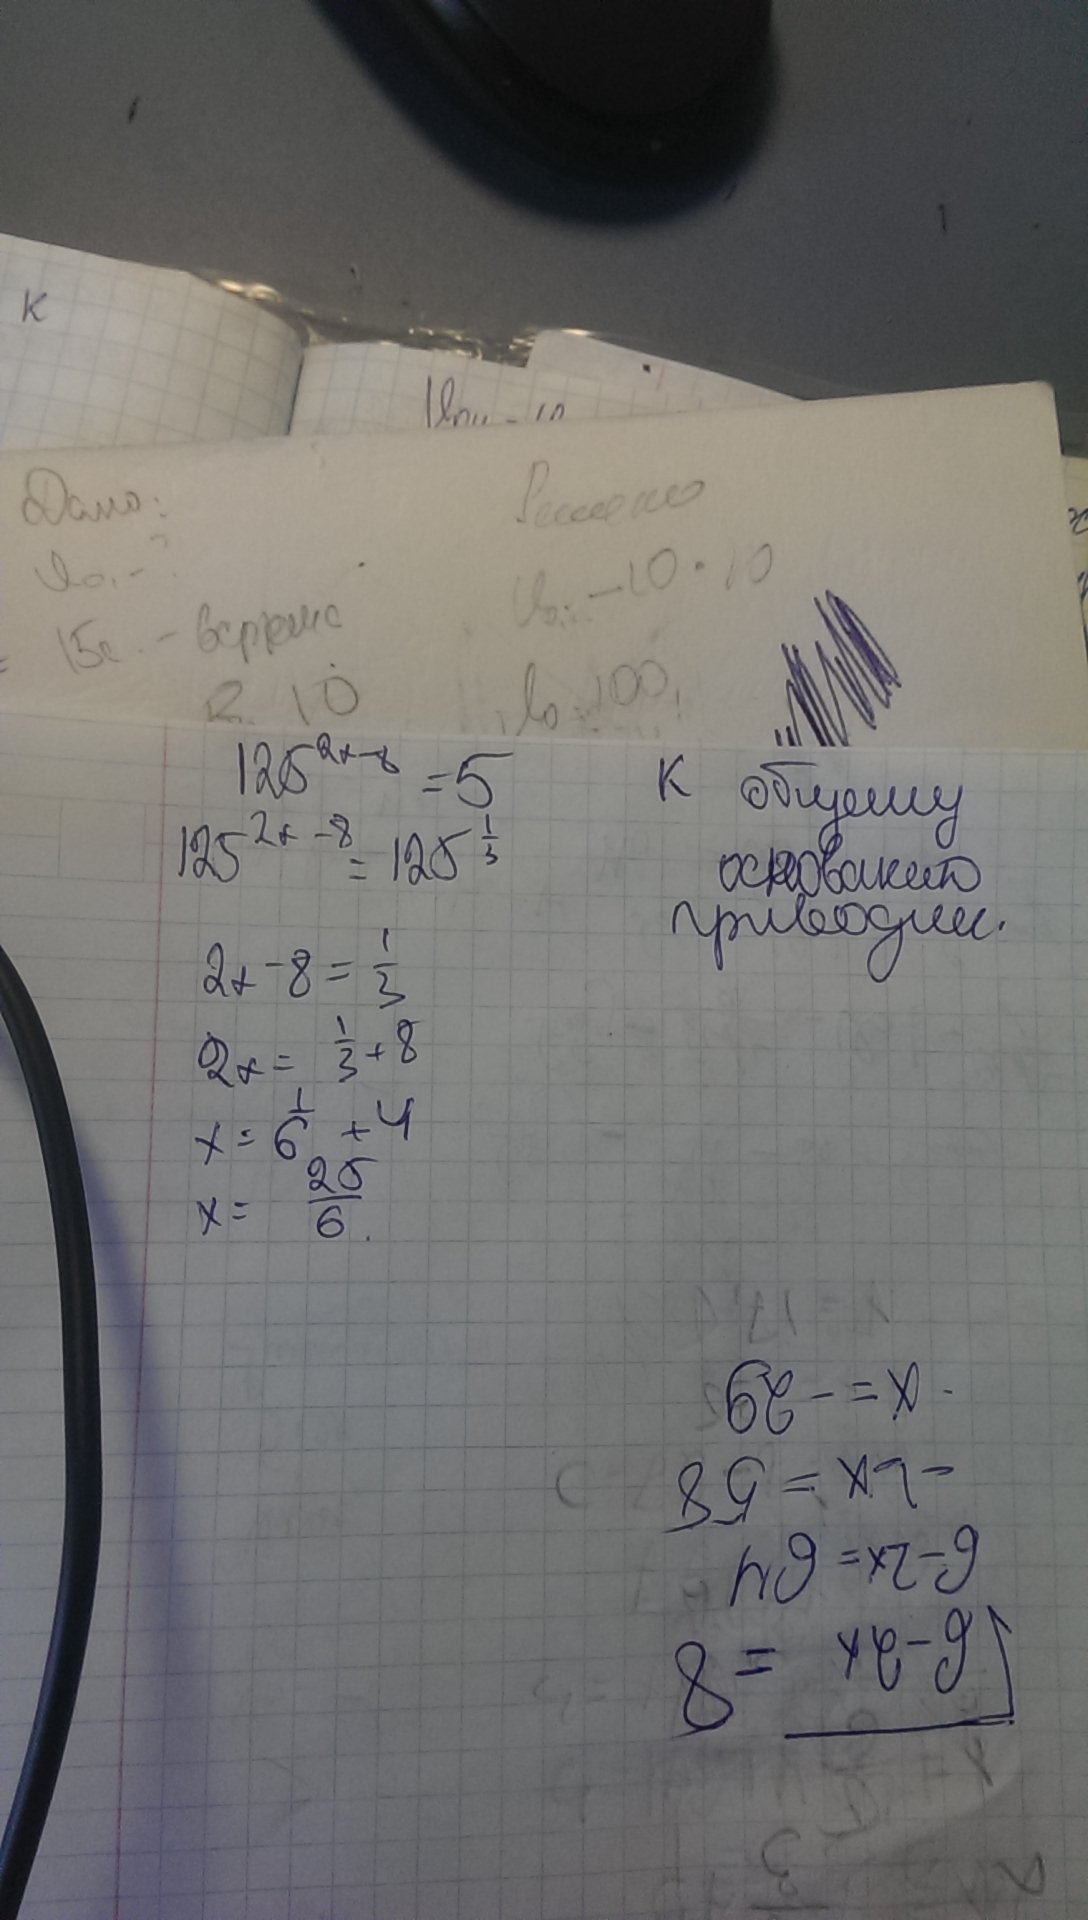 К
Дано:
Решено
-10 · 10
15с. -
R 10
100
125^(2x-8) = 5
125^(2x-8) = 125^(1/3)
2x-8 = 1/3
2x = 1/3 + 8
x = 1/6 + 4
x = 25/6.
К общему
основанию
приводим.
√(6-2x) = 8
6-2x = 64
-2x = 58
x = -29